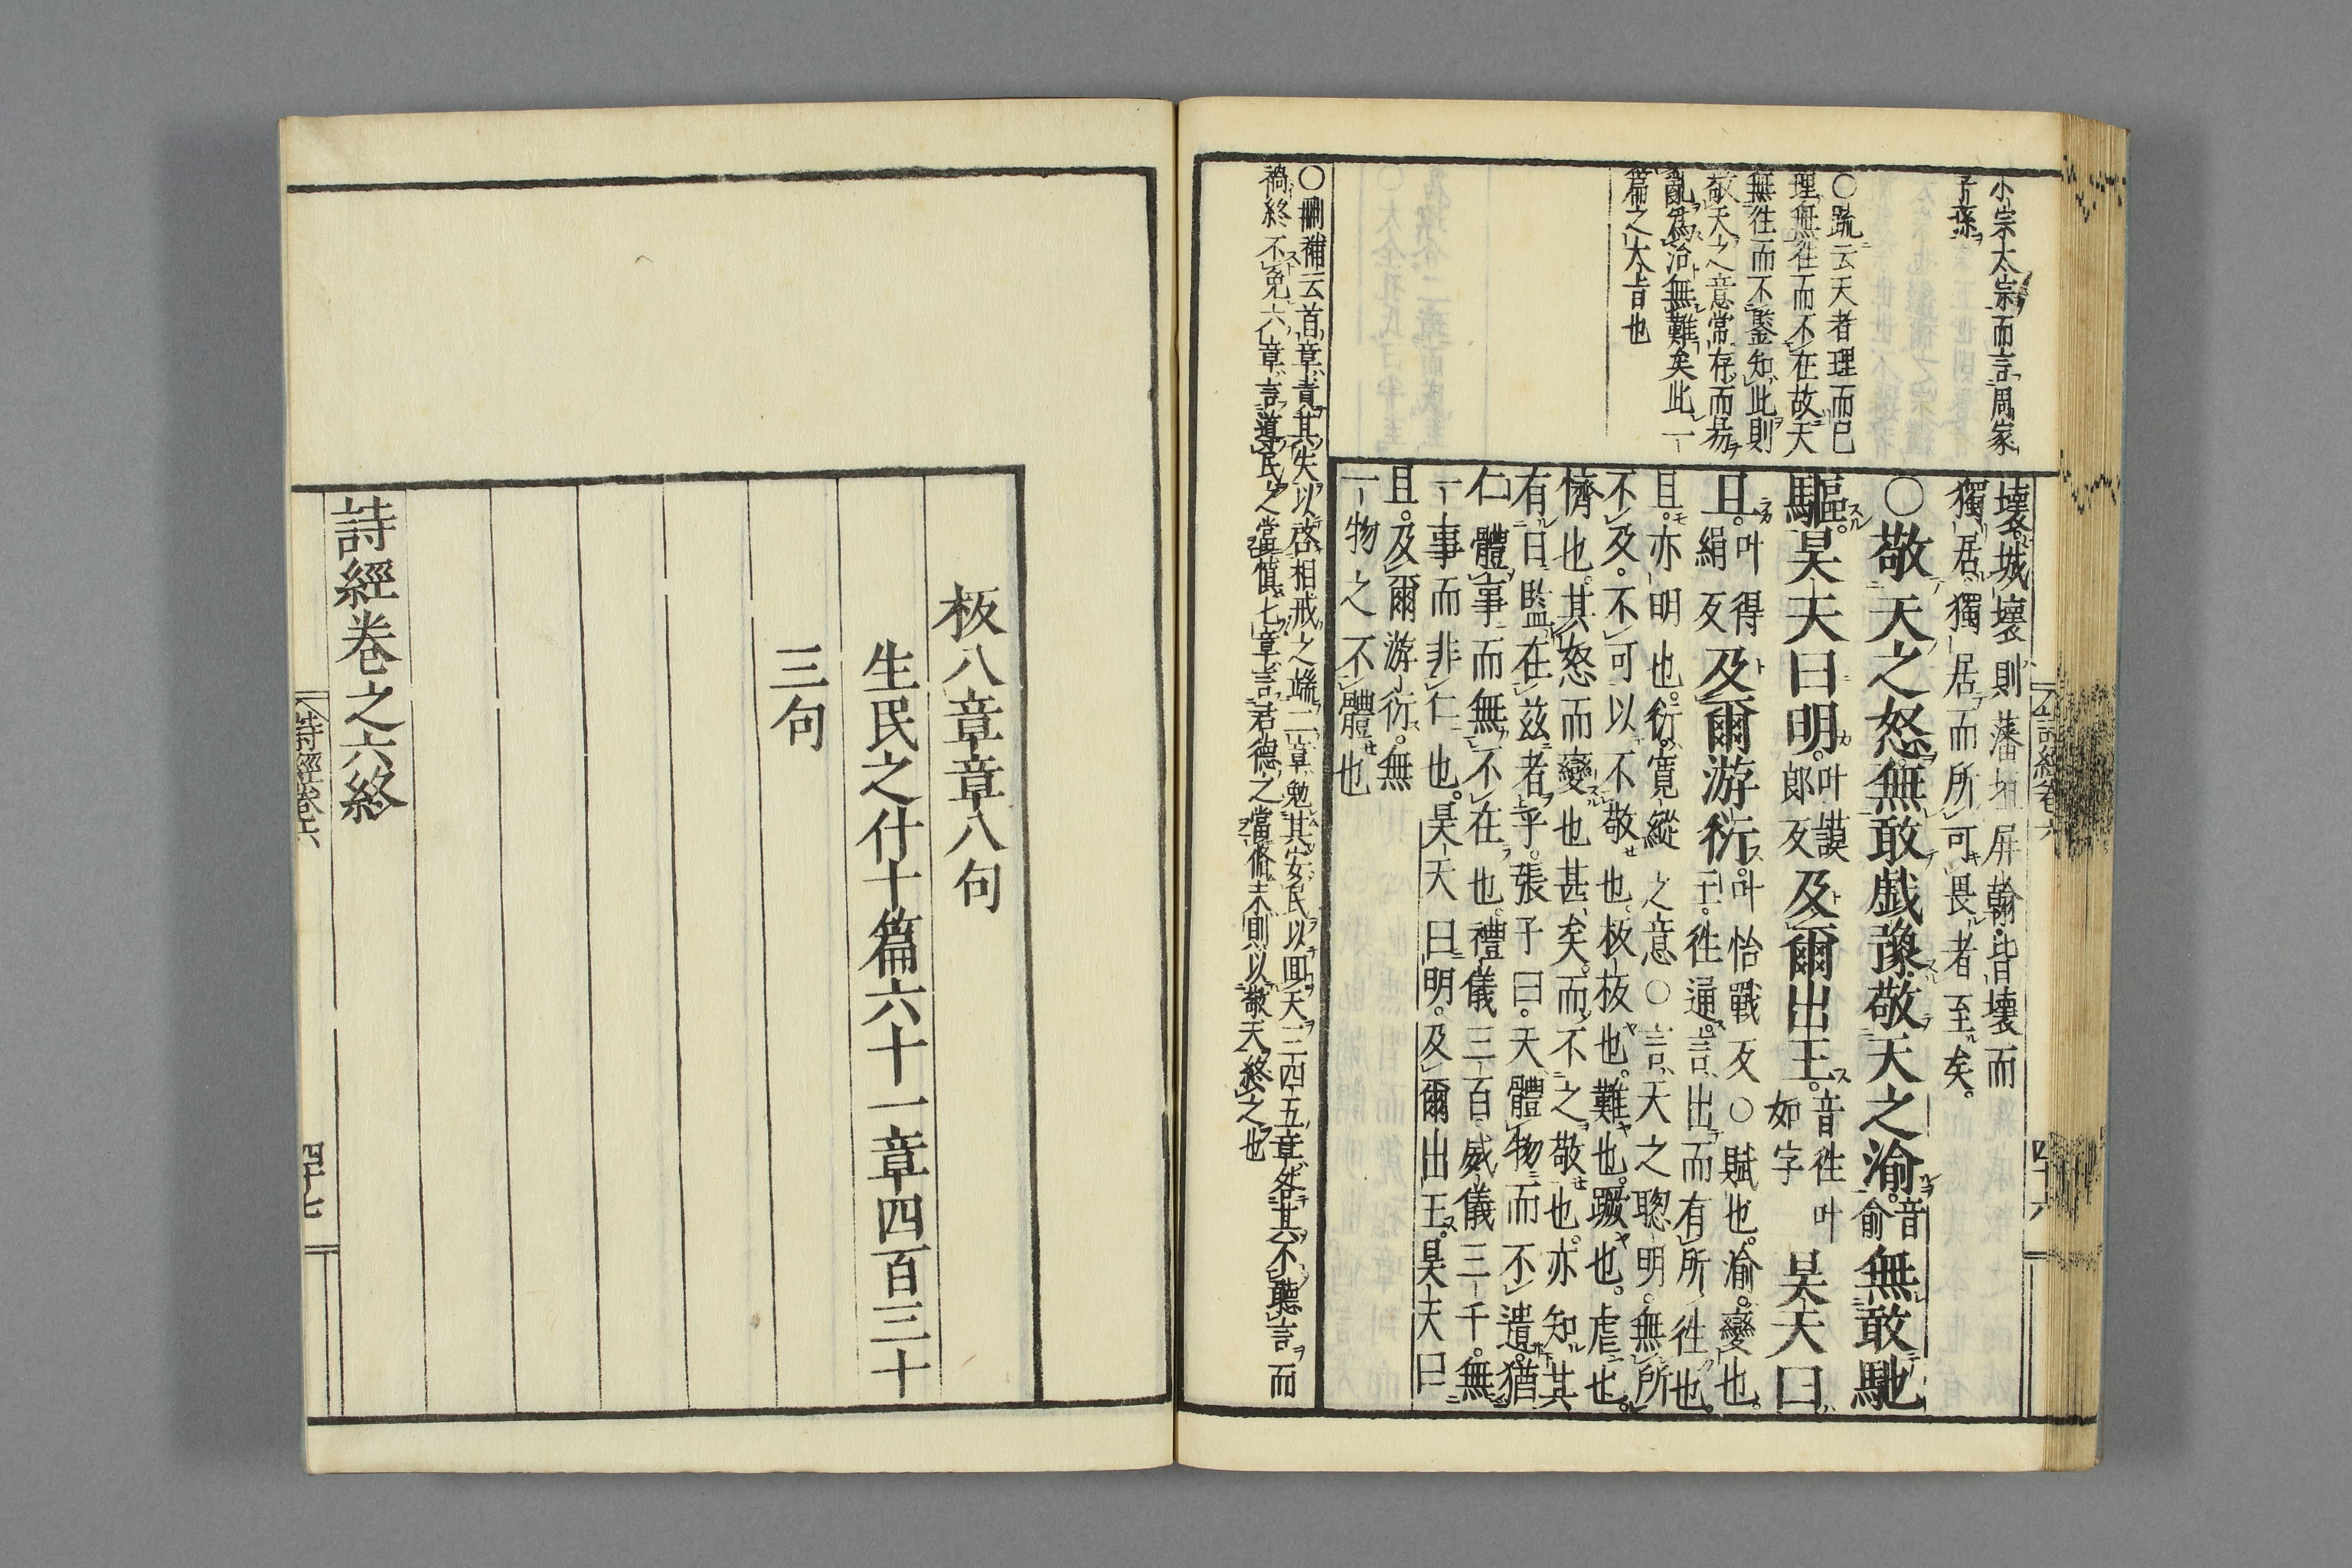 小宗大宗而言周家
子孫
○疏云天者理而已
理無徃而不在故天
無徃而不鑒知此則
敬天之意常存而易
亂爲治無難矣此一
篇之大旨也
壞城壞則藩垣屏翰皆壞而
獨居獨居而所可畏者至矣
○敬天之怒無敢戲豫敬天之渝音俞無敢馳
驅昊天曰明叶謨郎反及爾出王音徃叶如字昊天曰
旦叶得絹反及爾游衍叶怡戰反○賦也渝變也
王徃通言出而有所徃也
旦亦明也衍寬縱之意○言天之聰明無所
不及不可以不敬也板板也難也蹶也虐也
懠也其怒而變也甚矣而不之敬也亦知其
有日監在茲者乎張子曰天體物而不遺猶
仁體事而無不在也禮儀三百威儀三千無
一事而非仁也昊天曰明及爾出王昊天曰
旦及爾游衍無
一物之不體也
○刪補云首章責其失以啓相戒之端二章勉其安民以囬天三四五章咎其不聽言而
禍終不免六章言導民之當愼七章言君德之當脩末則以敬天終之也
詩經卷六
四十六
板八章章八句
生民之什十篇六十一章四百三十
三句
詩經卷之六終
詩經卷六
四十七